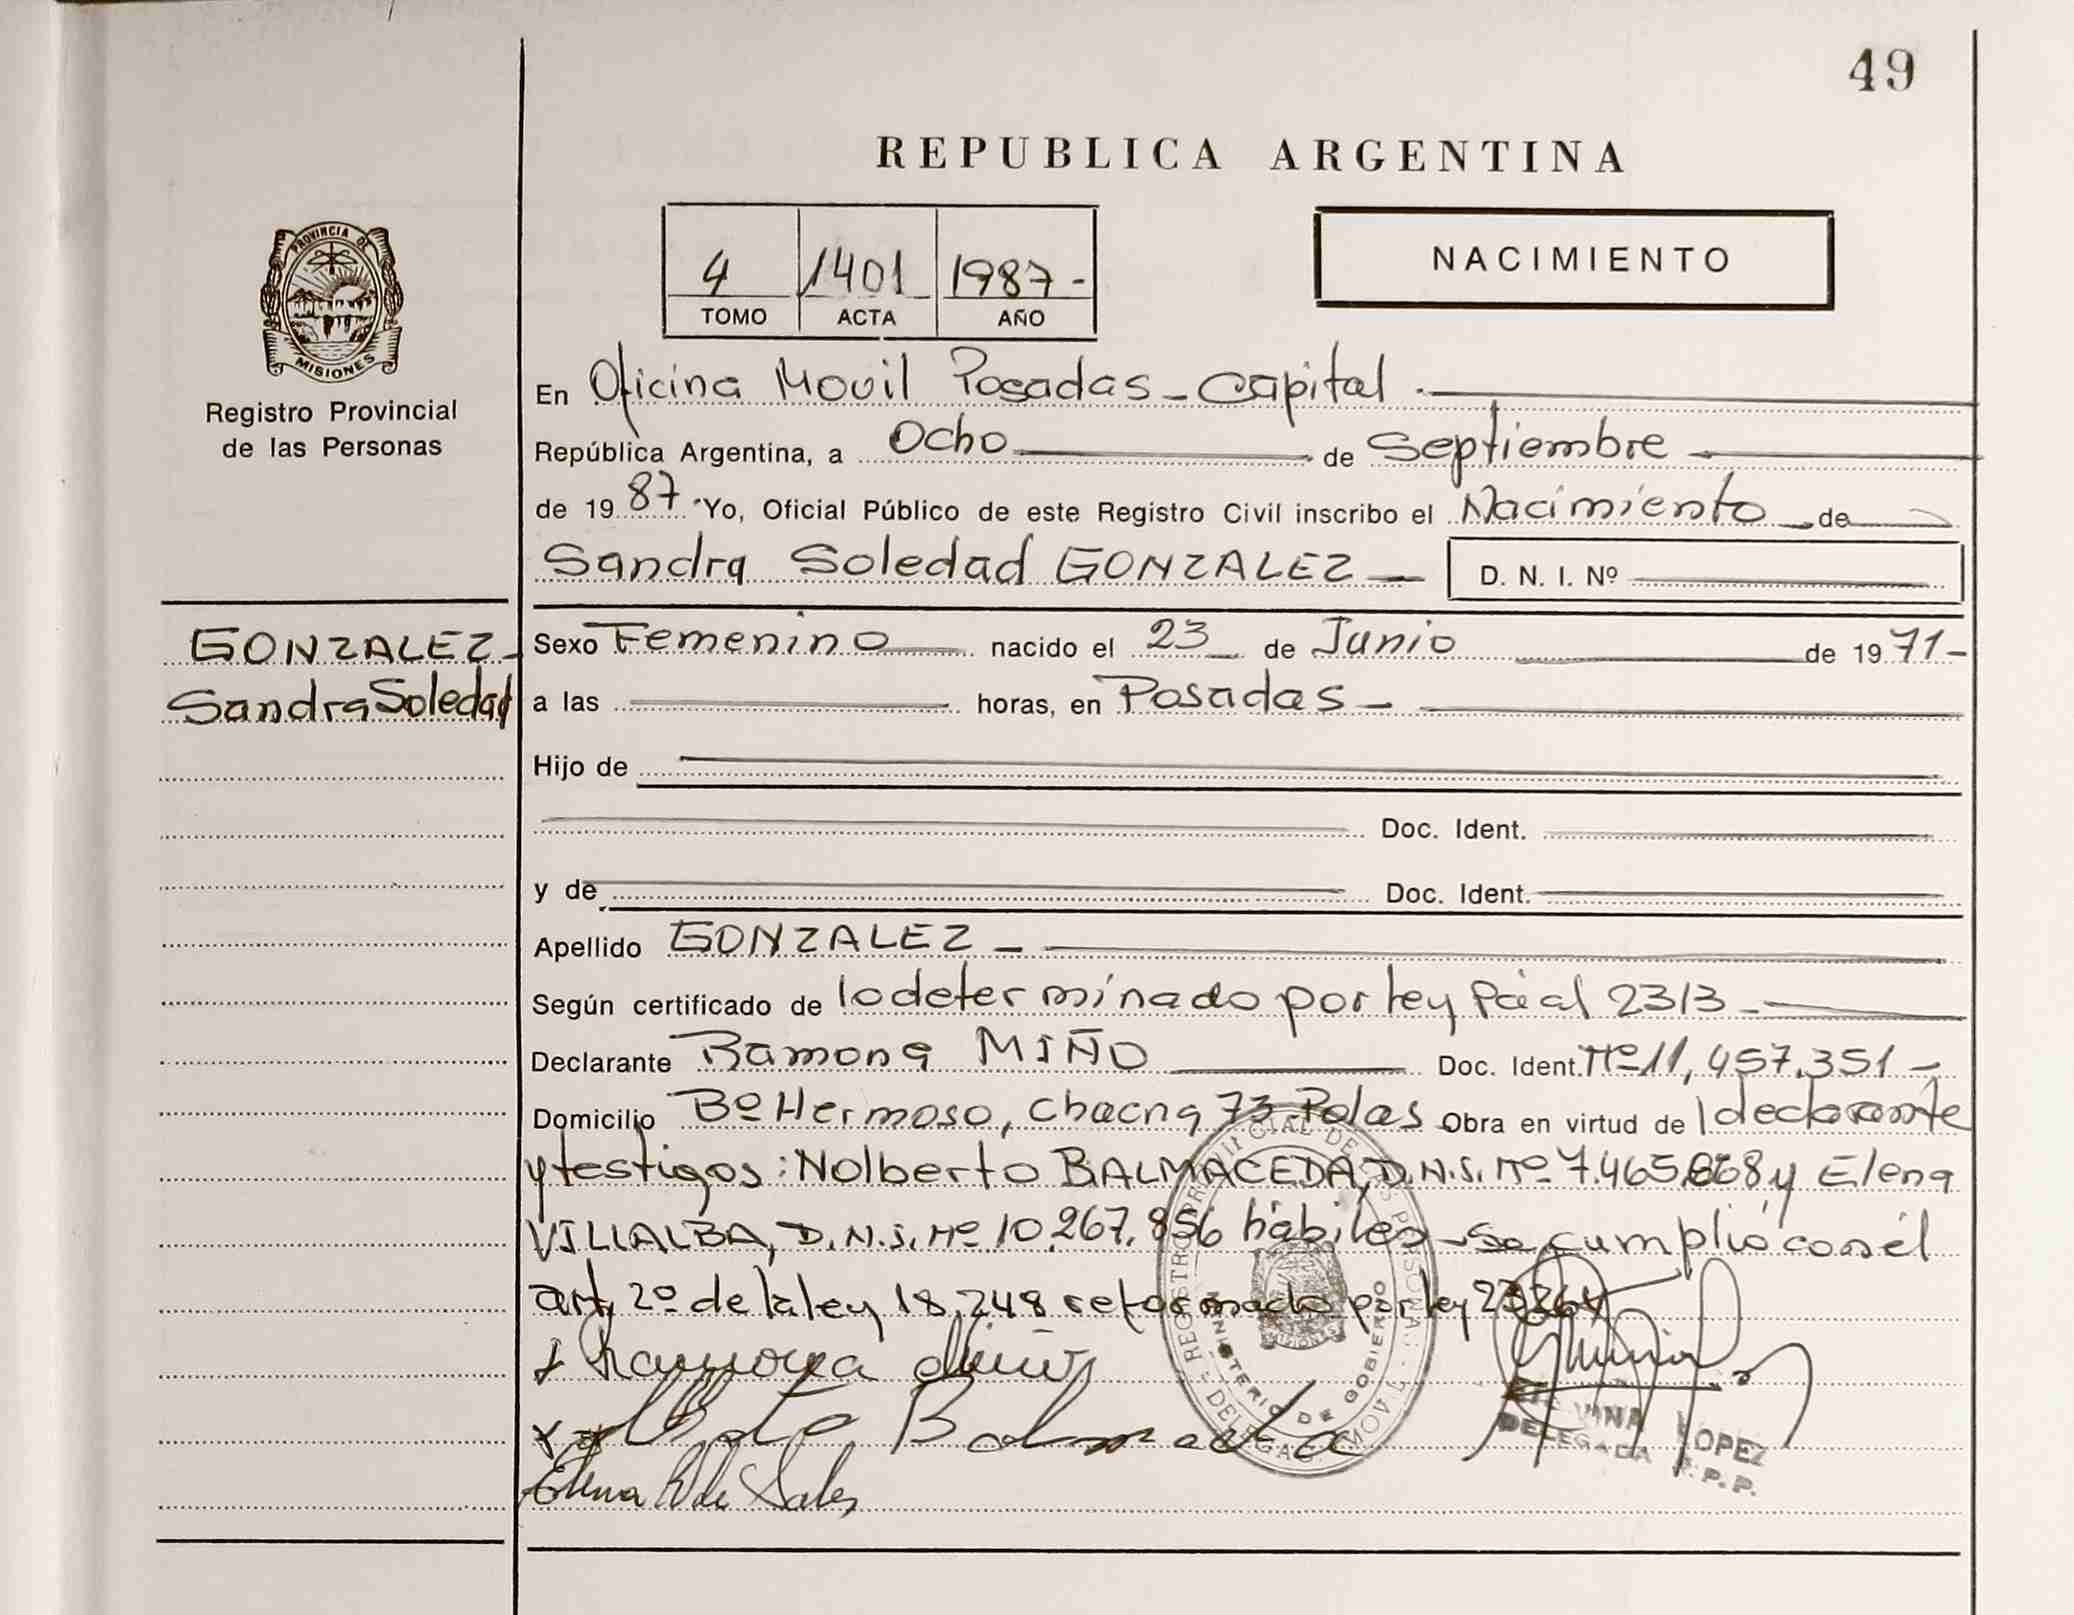 49
REPUBLICA ARGENTINA
4 1401 1987-
TOMO ACTA AÑO
NACIMIENTO
PROVINCIA DE
MISIONES
Registro Provincial
de las Personas
En Oficina Movil Posadas - Capital
República Argentina, a Ocho de Septiembre
de 1987 Yo, Oficial Público de este Registro Civil inscribo el Nacimiento de
Sandra Soledad GONZALEZ D. N. I. Nº
GONZALEZ
Sandra Soledad
Sexo Femenino nacido el 23 de Junio de 1971-
a las horas, en Posadas -
Hijo de
Doc. Ident.
y de Doc. Ident.
Apellido GONZALEZ -
Según certificado de lo determinado por ley Pcial 2313
Declarante Ramona MIÑO Doc. Ident. Nº 11,457.351 -
Domicilio Bº Hermoso, chacra 73 Pdas Obra en virtud de l declarante
y testigos: Nolberto BALMACEDA, D.N.I. Nº 7.465. y Elena
VILLALBA, D.N.I. Nº 10.267.856 hábiles - Se cumplió con el
art, 2º de la ley 18,248 reformado por ley 23264
Ramona Miño
Balmaceda
Elena de
REGISTRO PROVINCIAL DE LAS PERSONAS - DELEGAC. MOVIL
MINISTERIO DE GOBIERNO
LOPEZ
DELEGADA R.P.P.